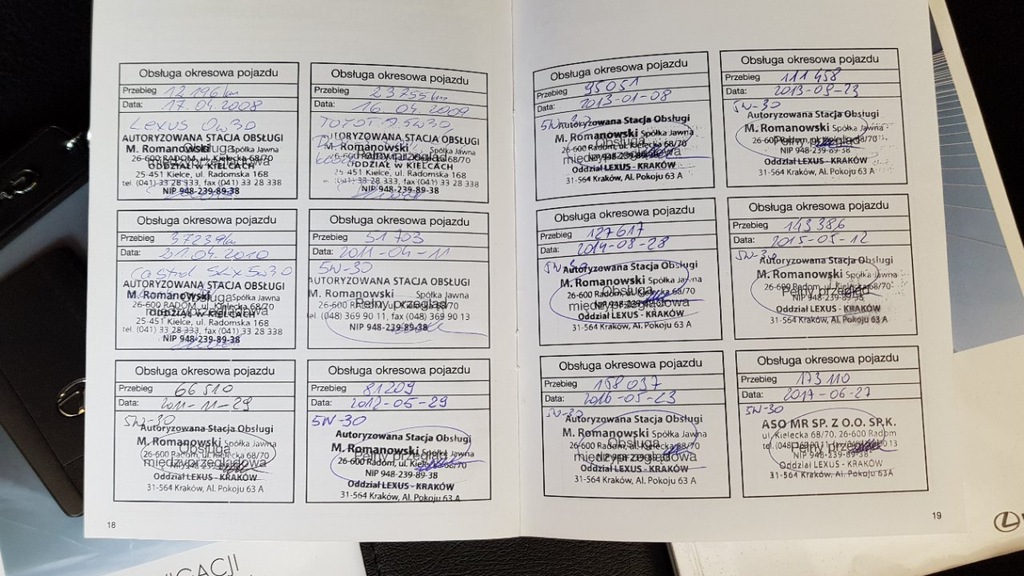 Obsługa okresowa pojazdu
Przebieg 12196km
Data: 17.04.2008
Lexus 0w30
AUTORYZOWANA STACJA OBSŁUGI
M. Romanowski Spółka Jawna
26-600 RADOM, ul. Kielecka 68/70
ODDZIAŁ w KIELCACH
25-451 Kielce, ul. Radomska 168
tel. (041) 33 28 333, fax (041) 33 28 338
NIP 948-239-89-38
Obsługa okresowa pojazdu
Przebieg 23755km
Data: 16.04.2009
5w30
AUTORYZOWANA STACJA OBSŁUGI
M. Romanowski Spółka Jawna
Pełny przegląd
ODDZIAŁ w KIELCACH
25-451 Kielce, ul. Radomska 168
33 28 333, fax (041) 33 28 338
NIP 948-239-89-38
Obsługa okresowa pojazdu
Przebieg 37239km
Data: 21.04.2010
Castrol SLX 5w30
AUTORYZOWANA STACJA OBSŁUGI
M. Romanowski Spółka Jawna
26-600 RADOM, ul. Kielecka 68/70
ODDZIAŁ w KIELCACH
25-451 Kielce, ul. Radomska 168
tel. (041) 33 28 333, fax (041) 33 28 338
NIP 948-239-89-38
Obsługa okresowa pojazdu
Przebieg 51703
Data: 2011-04-11
5W-30
AUTORYZOWANA STACJA OBSŁUGI
M. Romanowski Spółka Jawna
Pełny przegląd
26-600 Radom, ul. Kielecka 68/70
tel. (048) 369 90 11, fax (048) 369 90 13
NIP 948-239-89-38
Obsługa okresowa pojazdu
Przebieg 66510
Data: 2011-11-29
5W-30
Autoryzowana Stacja Obsługi
M. Romanowski Spółka Jawna
Obsługa
26-600 Radom, ul. Kielecka 68/70
międzyprzeglądowa
Oddział LEXUS - KRAKÓW
31-564 Kraków, Al. Pokoju 63 A
Obsługa okresowa pojazdu
Przebieg 81209
Data: 2012-05-29
5W-30
Autoryzowana Stacja Obsługi
M. Romanowski Spółka Jawna
Pełny przegląd
26-600 Radom, ul. Kielecka 68/70
NIP 948-239-89-38
Oddział LEXUS - KRAKÓW
31-564 Kraków, Al. Pokoju 63 A
18
Obsługa okresowa pojazdu
Przebieg 95051
Data: 2013-01-08
5W-30
Autoryzowana Stacja Obsługi
M. Romanowski Spółka Jawna
Obsługa
26-600 Radom, ul. Kielecka 68/70
międzyprzeglądowa
Oddział LEXUS - KRAKÓW
31-564 Kraków, Al. Pokoju 63 A
Obsługa okresowa pojazdu
Przebieg 111458
Data: 2013-09-23
5W-30
Autoryzowana Stacja Obsługi
M. Romanowski Spółka Jawna
26-600 Radom, ul. Kielecka 68/70
Pełny przegląd
NIP 948-239-89-38
Oddział LEXUS - KRAKÓW
31-564 Kraków, Al. Pokoju 63 A
Obsługa okresowa pojazdu
Przebieg 127617
Data: 2014-08-28
5W-30
Autoryzowana Stacja Obsługi
M. Romanowski Spółka Jawna
Obsługa
26-600 Radom, ul. Kielecka 68/70
międzyprzeglądowa
Oddział LEXUS - KRAKÓW
31-564 Kraków, Al. Pokoju 63 A
Obsługa okresowa pojazdu
Przebieg 143386
Data: 2015-05-12
5W-30
Autoryzowana Stacja Obsługi
M. Romanowski Spółka Jawna
26-600 Radom, ul. Kielecka 68/70
Pełny przegląd
NIP 948-239-89-38
Oddział LEXUS - KRAKÓW
31-564 Kraków, Al. Pokoju 63 A
Obsługa okresowa pojazdu
Przebieg 158037
Data: 2016-05-23
5W-30
Autoryzowana Stacja Obsługi
M. Romanowski Spółka Jawna
Obsługa
26-600 Radom, ul. Kielecka 68/70
międzyprzeglądowa
Oddział LEXUS - KRAKÓW
31-564 Kraków, Al. Pokoju 63 A
Obsługa okresowa pojazdu
Przebieg 173110
Data: 2017-06-27
5W-30
ASO MR SP. Z O.O. SP.K.
ul. Kielecka 68/70, 26-600 Radom
Pełny przegląd
NIP 948-239-89-38
Oddział LEXUS - KRAKÓW
31-564 Kraków, Al. Pokoju 63 A
19